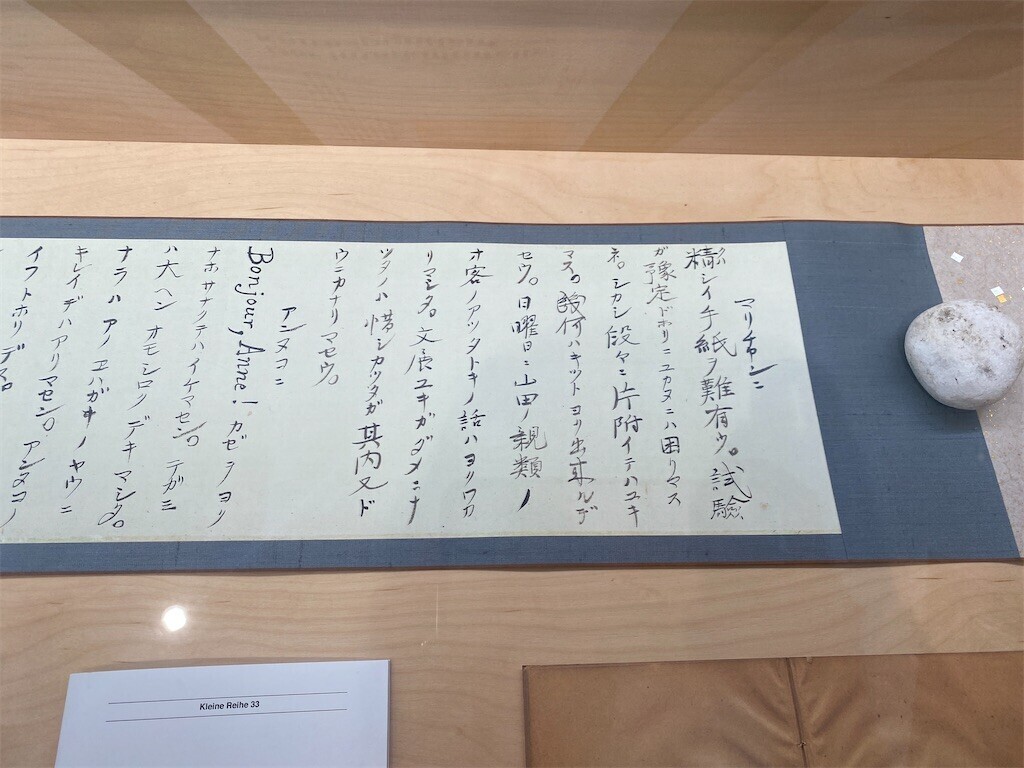 マリチャンニ
精シイ手紙ヲ難有ウ。試驗
ガ豫定ドホリニユカヌニハ困リマス
ネ。シカシ段々ニ片附イテハユキ
マス。幾何ハキットヨク出來ルデ
セウ。日曜日ニ山田ノ親類ノ
オ客ノアツタトキノ話ハヨクワカ
リマシタ。文展ユキガダメニナ
ツタノハ惜シカツタガ其内又ド
ウニカナリマセウ。
アンヌコニ
Bonjour, Anne! カゼヲヨク
ナホサナクテハイケマセン。テガミ
ハ大ヘンオモシロクデキマシタ。
ナラハアノエハガキノヤウニ
キレイデハアリマセン。
イフトホリデス。アンヌコノ
Kleine Reihe 33